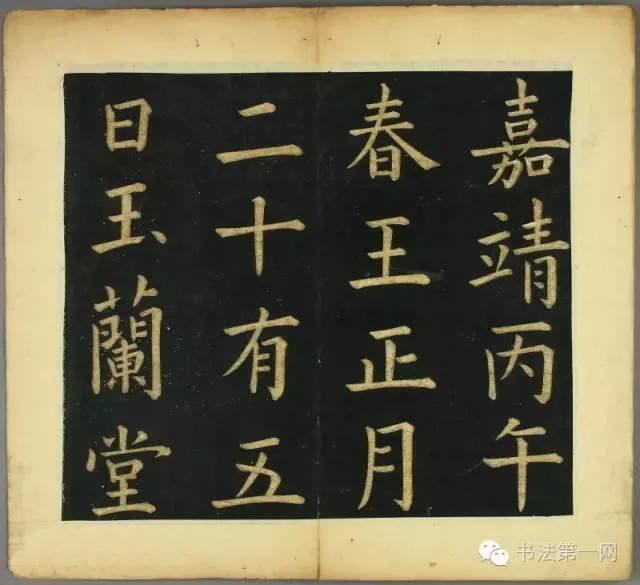 嘉靖丙午
春王正月
二十有五
日玉蘭堂
书法第一网